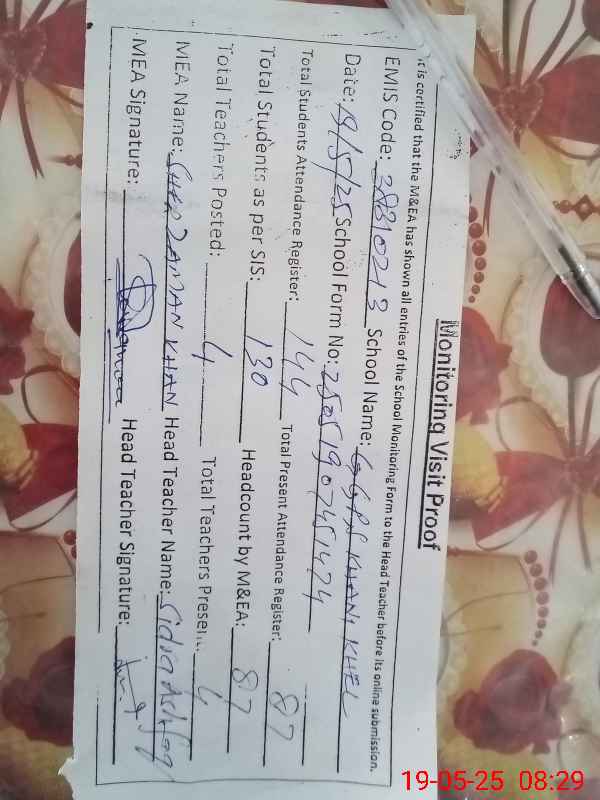 Monitoring Visit Proof
It is certified that the M&EA has shown all entries of the School Monitoring Form to the Head Teacher before its online submission.
EMIS Code: 38310213 School Name: GGPS KHANI KHEL
Date: 19/5/25 School Form No: 25051907451474
Total Students Attendance Register: 144 Total Present Attendance Register: 87
Total Students as per SIS: 130 Headcount by M&EA: 87
Total Teachers Posted: 4 Total Teachers Present: 4
MEA Name: SHER ZAMAN KHAN Head Teacher Name:
MEA Signature: Head Teacher Signature:
19-05-25 08:29